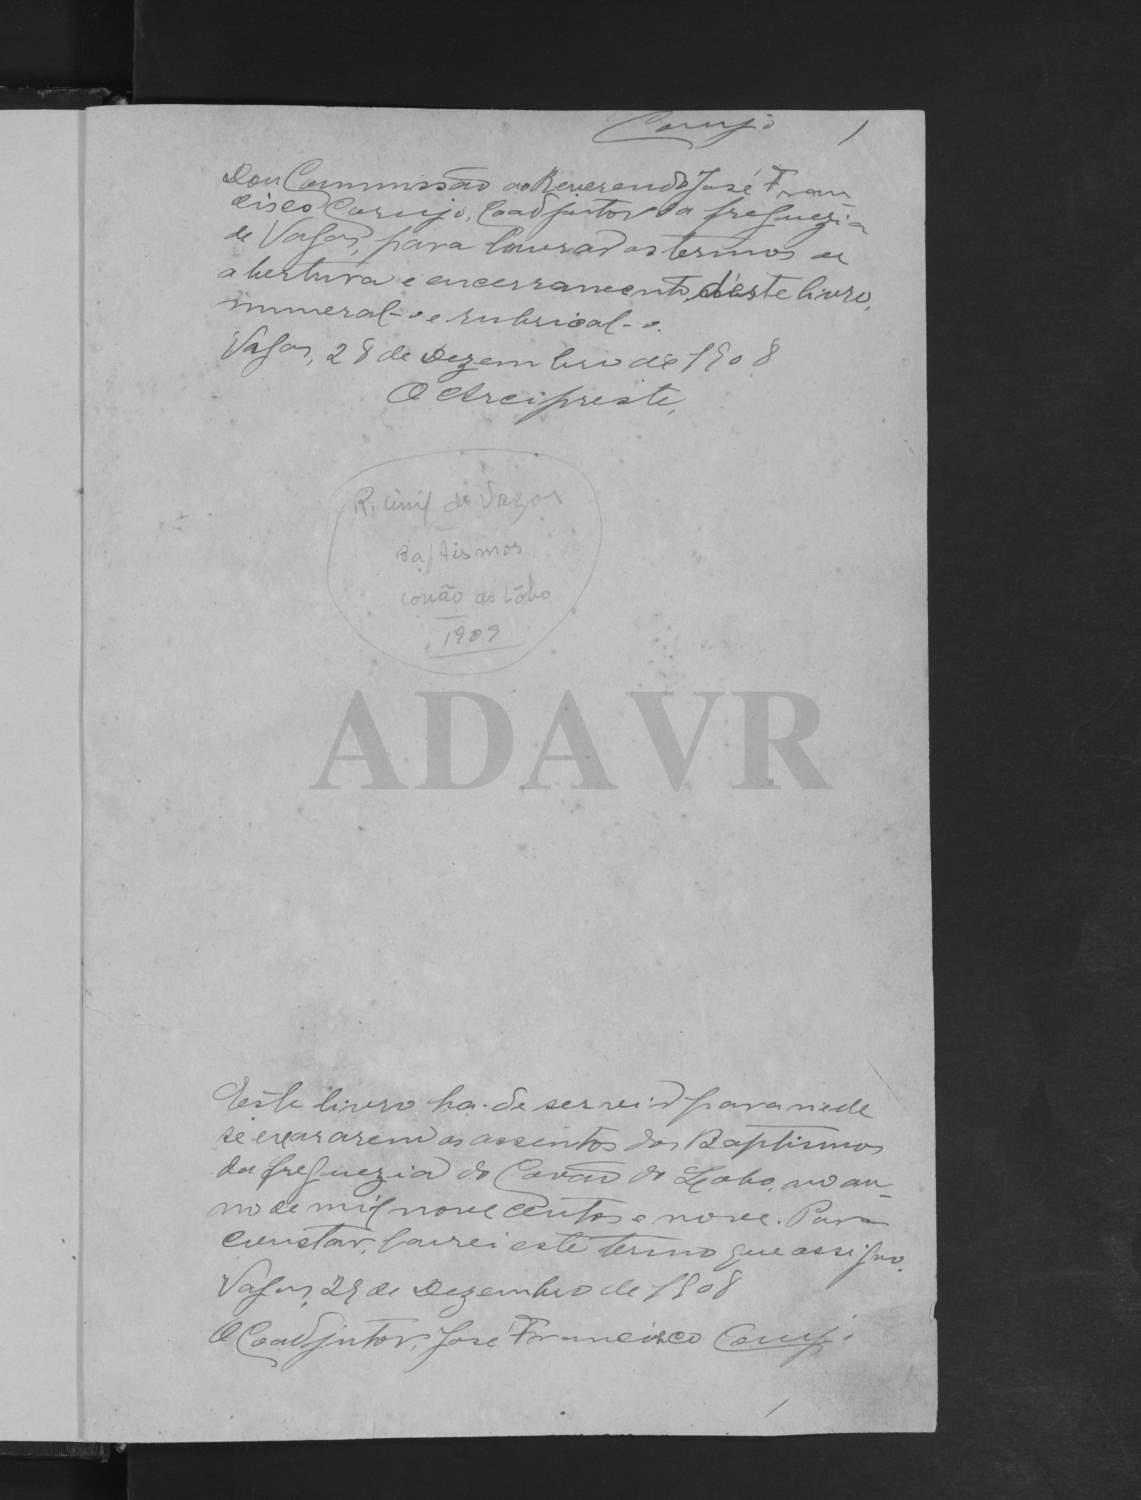 Corujo 1
Dou Commissão ao Reverendo José Fran
cisco Corujo, Coadjutor da freguezia
de Vagos, para lavrar os termos de
abertura e encerramento d'este livro,
numeral-o e rubrical-o.
Vagos, 28 de Dezembro de 1908
O Arcipreste,
R. Civil de Vagos
Baptismos
Covão do Lôbo
1909
ADAVR
Este livro ha-de servir para n'ele
se exararem os assentos dos Baptismos
da freguezia do Covão do Lobo, no an-
no de mil nove centos e nove. Para
constar, lavrei este termo que assigno.
Vagos, 29 de Dezembro de 1908
O Coadjutor, José Francisco Corujo
1